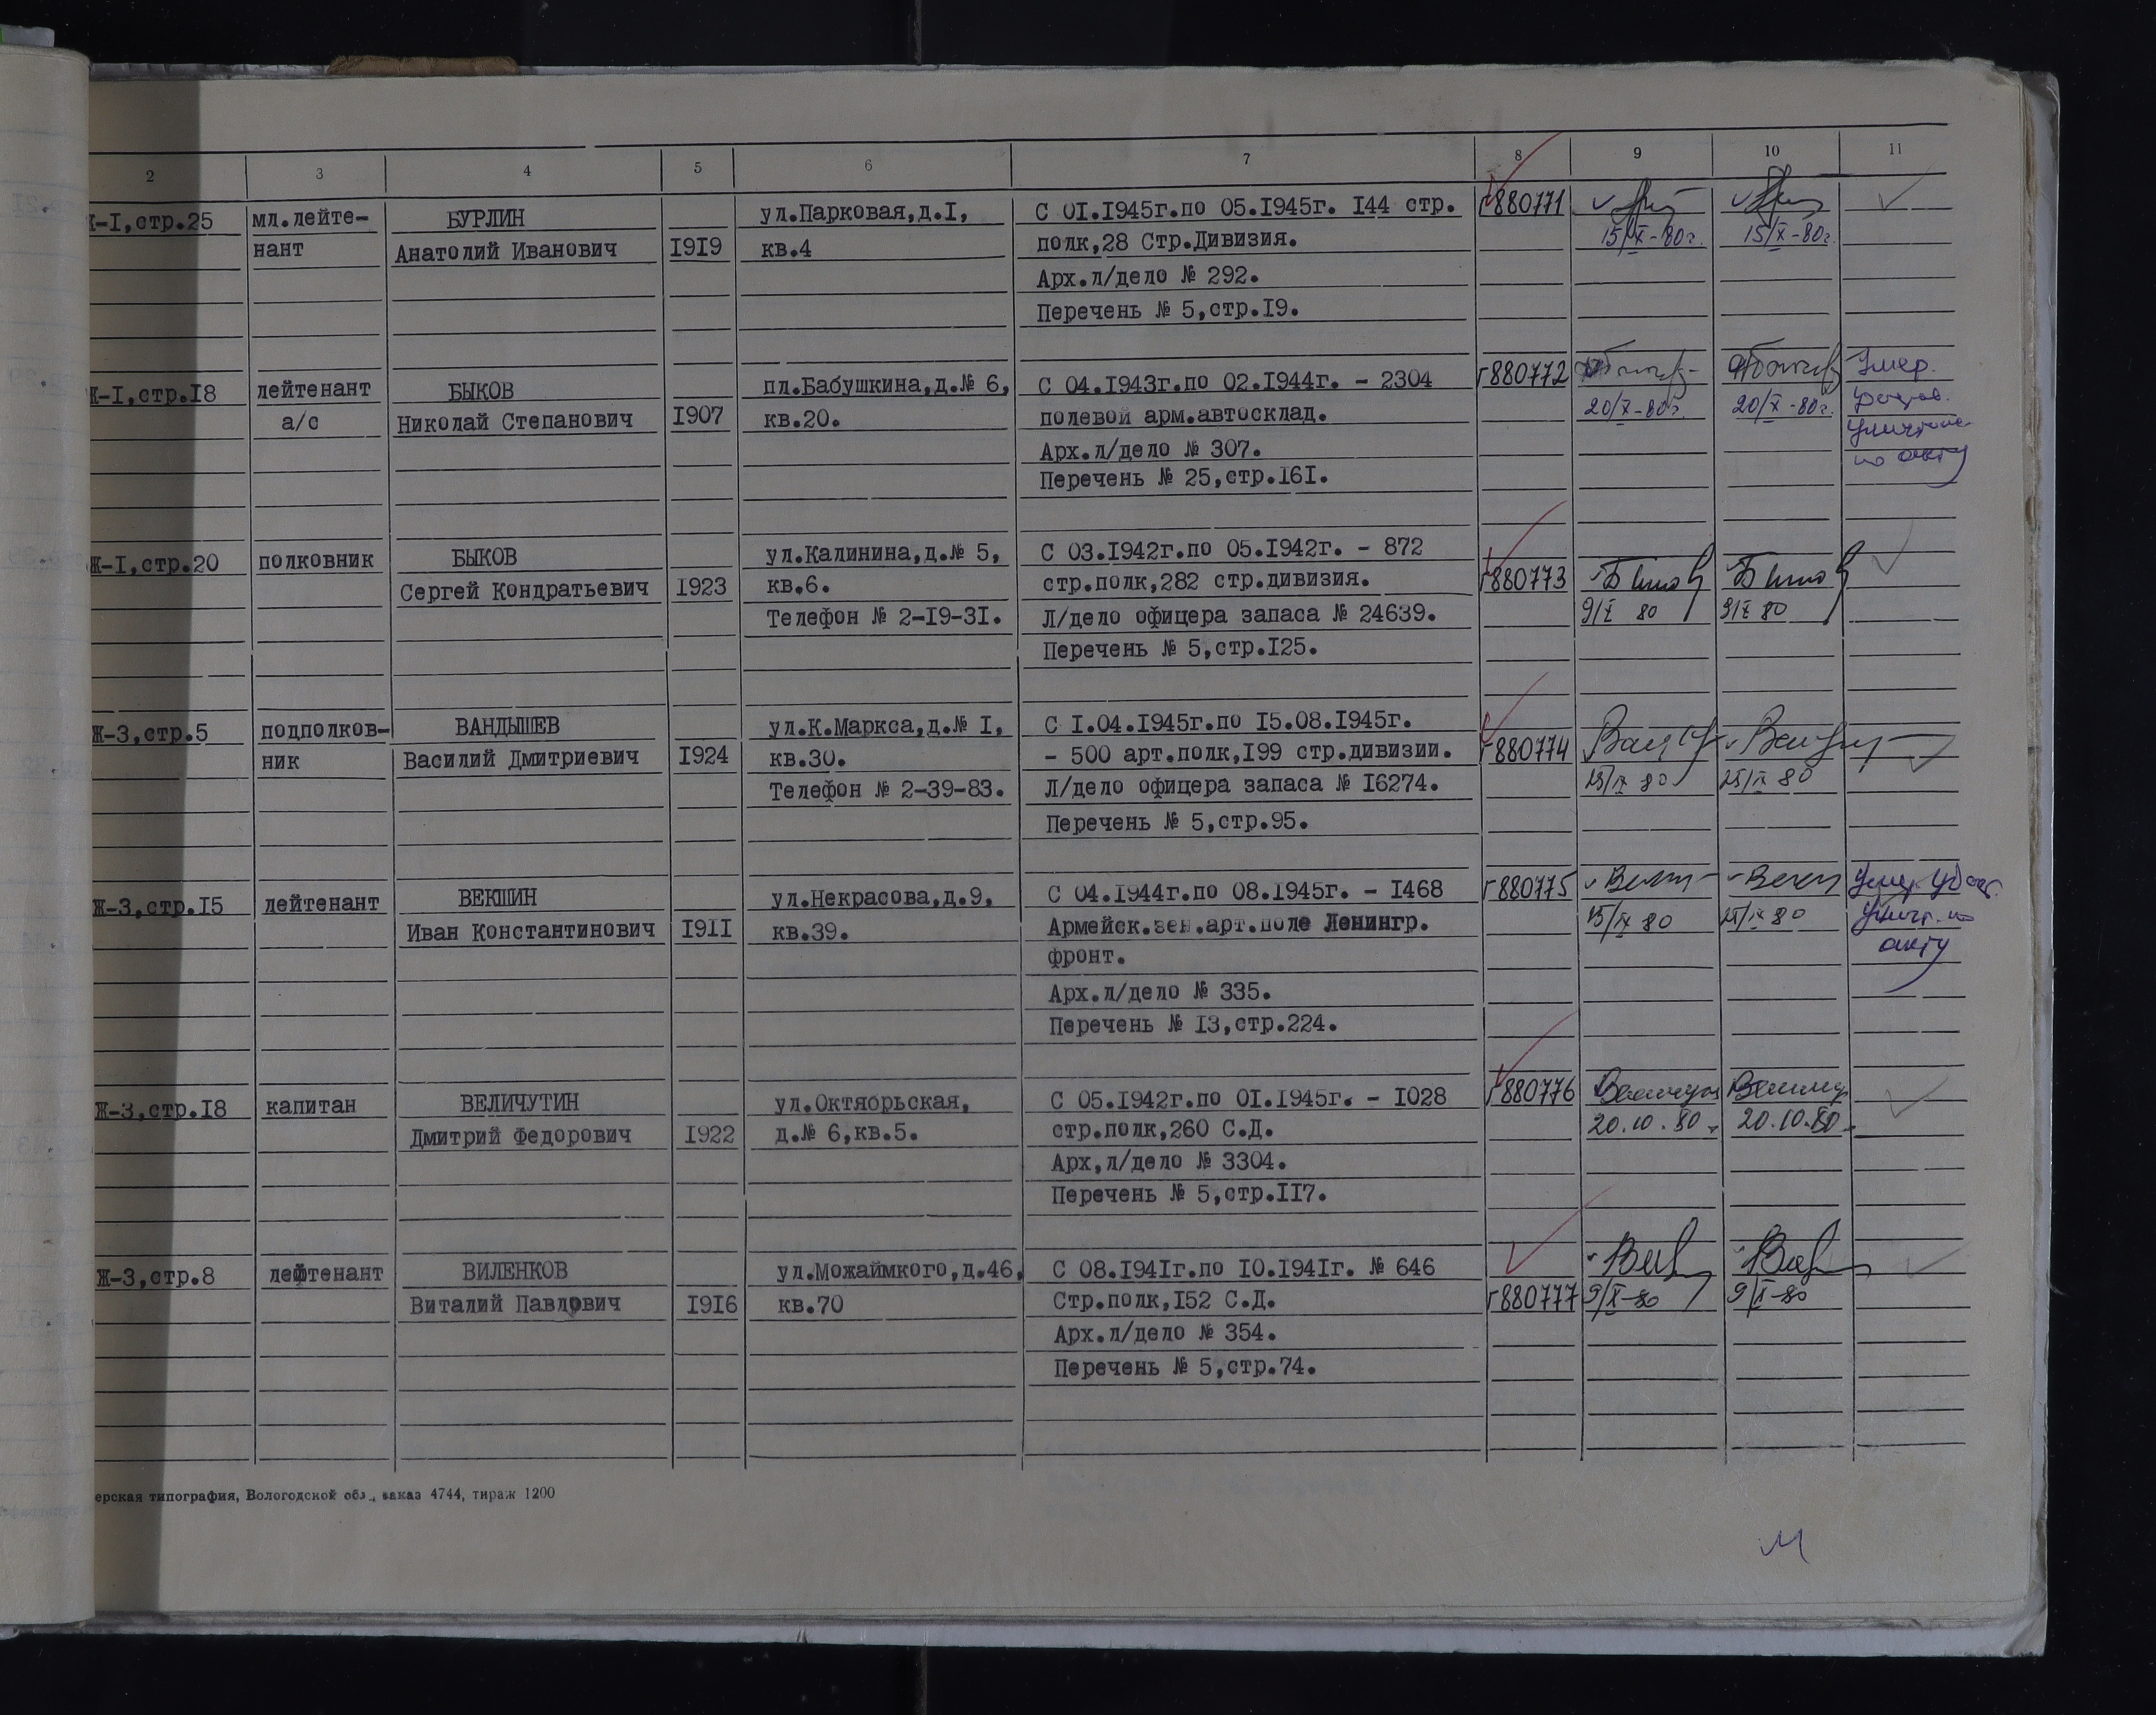 2 3 4 5 6 7 8 9 10 11
Ж-I,стр.25 мл.лейте- БУРЛИН ул.Парковая,д.I, С 0I.I945г.по 05.I945г. I44 стр. Г880771
нант Анатолий Иванович I9I9 кв.4 полк,28 Стр.Дивизия. 15/X-80г. 15/X-80г.
Арх.л/дело № 292.
Перечень № 5,стр.I9.
Ж-I,стр.I8 лейтенант БЫКОВ пл.Бабушкина,д.№ 6, С 04.I943г.по 02.I944г. - 2304 Г880772 Умер.
а/с Николай Степанович I907 кв.20. полевой арм.автосклад. 20/X-80г. 20/X-80г.
Арх.л/дело № 307. по акту
Перечень № 25,стр.I6I.
Ж-I,стр.20 полковник БЫКОВ ул.Калинина,д.№ 5, С 03.I942г.по 05.I942г. - 872
Сергей Кондратьевич I923 кв.6. стр.полк,282 стр.дивизия. Г880773
Телефон № 2-I9-3I. Л/дело офицера запаса № 24639. 9/X 80 9/X 80
Перечень № 5,стр.I25.
Ж-3,стр.5 подполков- ВАНДЫШЕВ ул.К.Маркса,д.№ I, С I.04.I945г.по I5.08.I945г.
ник Василий Дмитриевич I924 кв.30. - 500 арт.полк,I99 стр.дивизии. Г880774
Телефон № 2-39-83. Л/дело офицера запаса № I6274. 80 80
Перечень № 5,стр.95.
Ж-3,стр.I5 лейтенант ВЕКШИН ул.Некрасова,д.9, С 04.I944г.по 08.I945г. - I468 Г880775
Иван Константинович I9II кв.39. Армейск.зен.арт.поле Ленингр. 80 80
фронт. акту
Арх.л/дело № 335.
Перечень № I3,стр.224.
Ж-3,стр.I8 капитан ВЕЛИЧУТИН ул.Октябрьская, С 05.I942г.по 0I.I945г. - I028 Г880776
Дмитрий Федорович I922 д.№ 6,кв.5. стр.полк,260 С.Д. 20.10.80 20.10.80
Арх,л/дело № 3304.
Перечень № 5,стр.II7.
Ж-3,стр.8 лейтенант ВИЛЕНКОВ ул.Можаймкого,д.46, С 08.I94Iг.по I0.I94Iг. № 646
Виталий Павлович I9I6 кв.70 Стр.полк,I52 С.Д. Г880777 9/X-80 9/X-80
Арх.л/дело № 354.
Перечень № 5,стр.74.
ерская типография, Вологодской обл., заказ 4744, тираж 1200